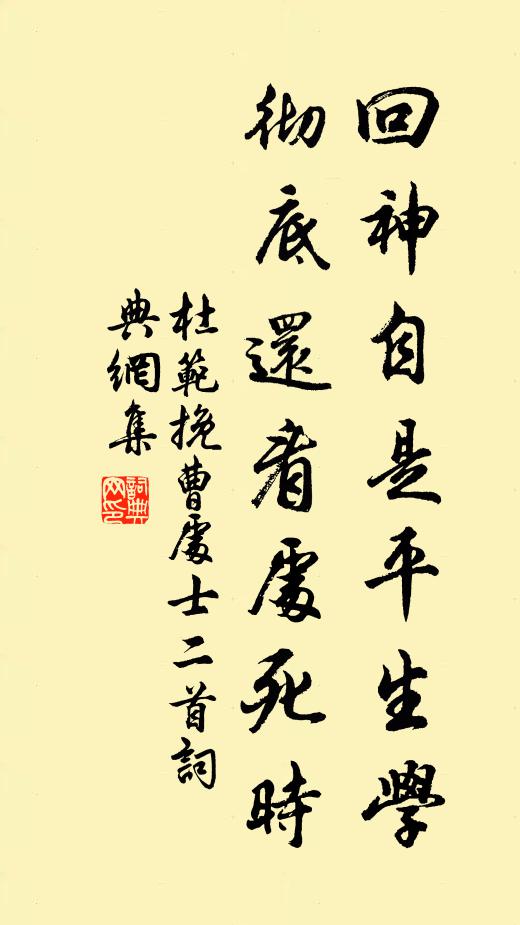 回神自是平生學
彻底還看處死時
杜範挽曹處士二首詞
典網集
詞典网印